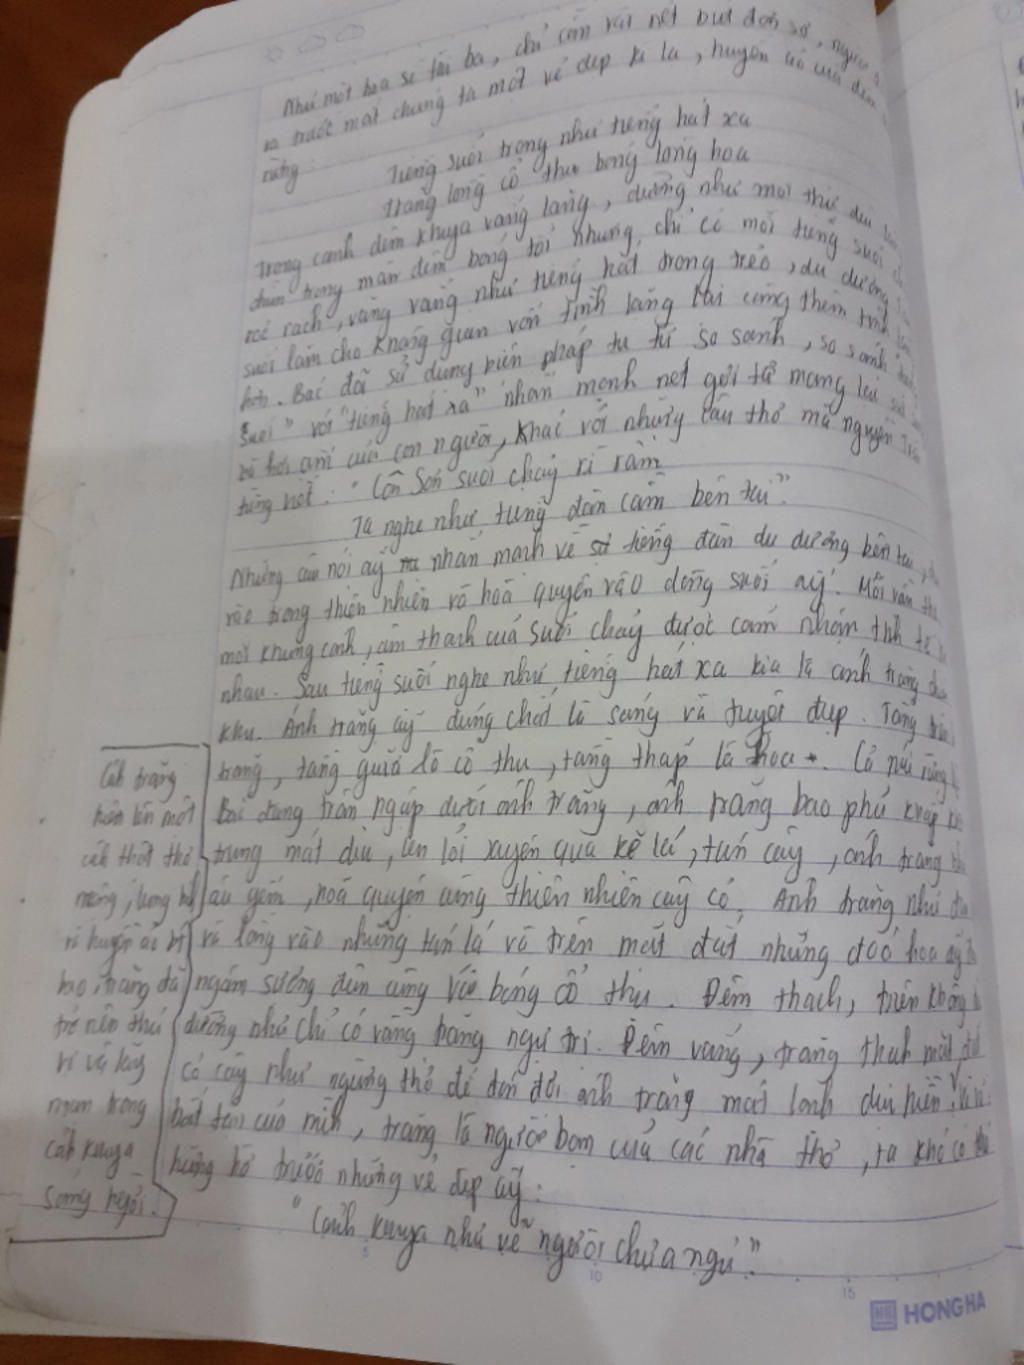 Như một họa sĩ tài ba, chỉ cần vài nét bút đơn sơ, người
ra trước mắt chúng ta một vẻ đẹp kì lạ, huyền ảo của đêm
rừng:
Tiếng suối trong như tiếng hát xa
Trăng lồng cổ thụ bóng lồng hoa
Trong cảnh đêm khuya vắng lặng, dường như mọi thứ đều
chìm trong màn đêm bóng tối nhưng, chỉ có mỗi tiếng suối
róc rách, văng vẳng như tiếng hát trong trẻo, du dương
suối làm cho không gian vốn tĩnh lặng lại càng thêm tĩnh
hơn. Bác đã sử dụng biện pháp tu từ so sánh, so sánh
suối" với "tiếng hát xa" nhấn mạnh nét gợi tả mang lại
hơi ấm của con người, khác với những câu thơ mà Nguyễn Trãi
từng viết: "Côn Sơn suối chảy rì rầm
Ta nghe như tiếng đàn cầm bên tai".
Những câu nói ấy nhấn mạnh về tiếng đàn du dương bên tai,
vào trong thiên nhiên và hoà quyện vào dòng suối ấy. Mỗi vần
một khung cảnh, âm thanh của suối chảy được cảm nhận tinh tế
nhau. Sau tiếng suối nghe như tiếng hát xa kia là ánh trăng
khu. Ánh trăng ấy đúng chất là sáng và tuyệt đẹp. Tầng
trăng, tầng giữa là cổ thụ, tầng thấp là hoa. Cả núi rừng
Bắc đang tràn ngập dưới ánh trăng, ánh trăng bao phủ khắp
trung mát dịu, len lỏi xuyên qua kẽ lá, tán cây, ánh trăng
âu yếm, hoà quyện cùng thiên nhiên cây cỏ. Ánh trăng như
và lồng vào những tán lá và trên mặt đất những đoá hoa ấy
ngậm sương đêm cùng với bóng cổ thụ. Đêm thanh, trên không
dường như chỉ có vầng trăng ngự trị. Đêm vắng, trăng thanh mặt
cỏ cây như ngừng thở để đón đợi ánh trăng mát lành dịu hiền,
bất tận của mình, trăng là người bạn của các nhà thơ, ta khó có thể
hững hờ trước những vẻ đẹp ấy:
"Cảnh khuya như vẽ người chưa ngủ"
Cảnh trăng
hiện lên một
cách thật thơ
mộng, lung
linh huyền ảo
bao, trăng đã
trở nên thú
vị và
trong
cảnh khuya
sáng ngời.
5
10
15
HONG HA